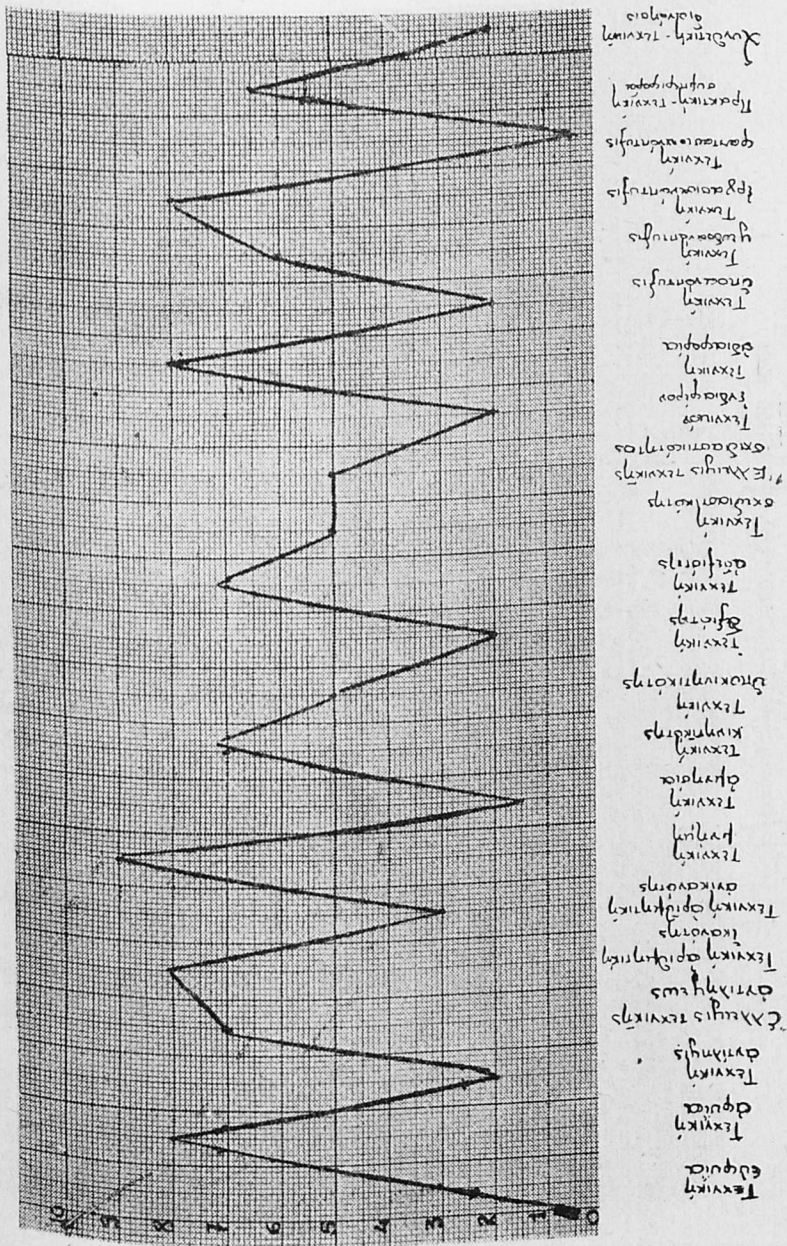 0
1
2
3
4
5
6
7
8
9
10
Τεχνική
εὐφυία
Τεχνική
ἀφυία
Τεχνική
ἀντίληψις
Ἔλλειψις τεχνικῆς
ἀντιλήψεως
Τεχνική ἀριθμητική
ἱκανότης
Τεχνική ἀριθμητική
ἀνικανότης
Τεχνική
μνήμη
Τεχνική
ἀμνησία
Τεχνική
κινητικότης
Τεχνική
ὑποκινητικότης
Τεχνική
δεξιότης
Τεχνική
ἀδεξιότης
Τεχνική
σχεδιαστικότης
Ἔλλειψις τεχνικῆς
σχεδιαστικότητος
Τεχνικόν
ἐνδιαφέρον
Τεχνική
ἀδιαφορία
Τεχνική
ὑποανάπτυξις
Τεχνική
ψευδοανάπτυξις
Τεχνική
ἐργασιοανάπτυξις
Τεχνική
φαντασιοανάπτυξις
Πρακτική-Τεχνική
συμπεριφορά
Συνθετική-Τεχνική
διανόησις